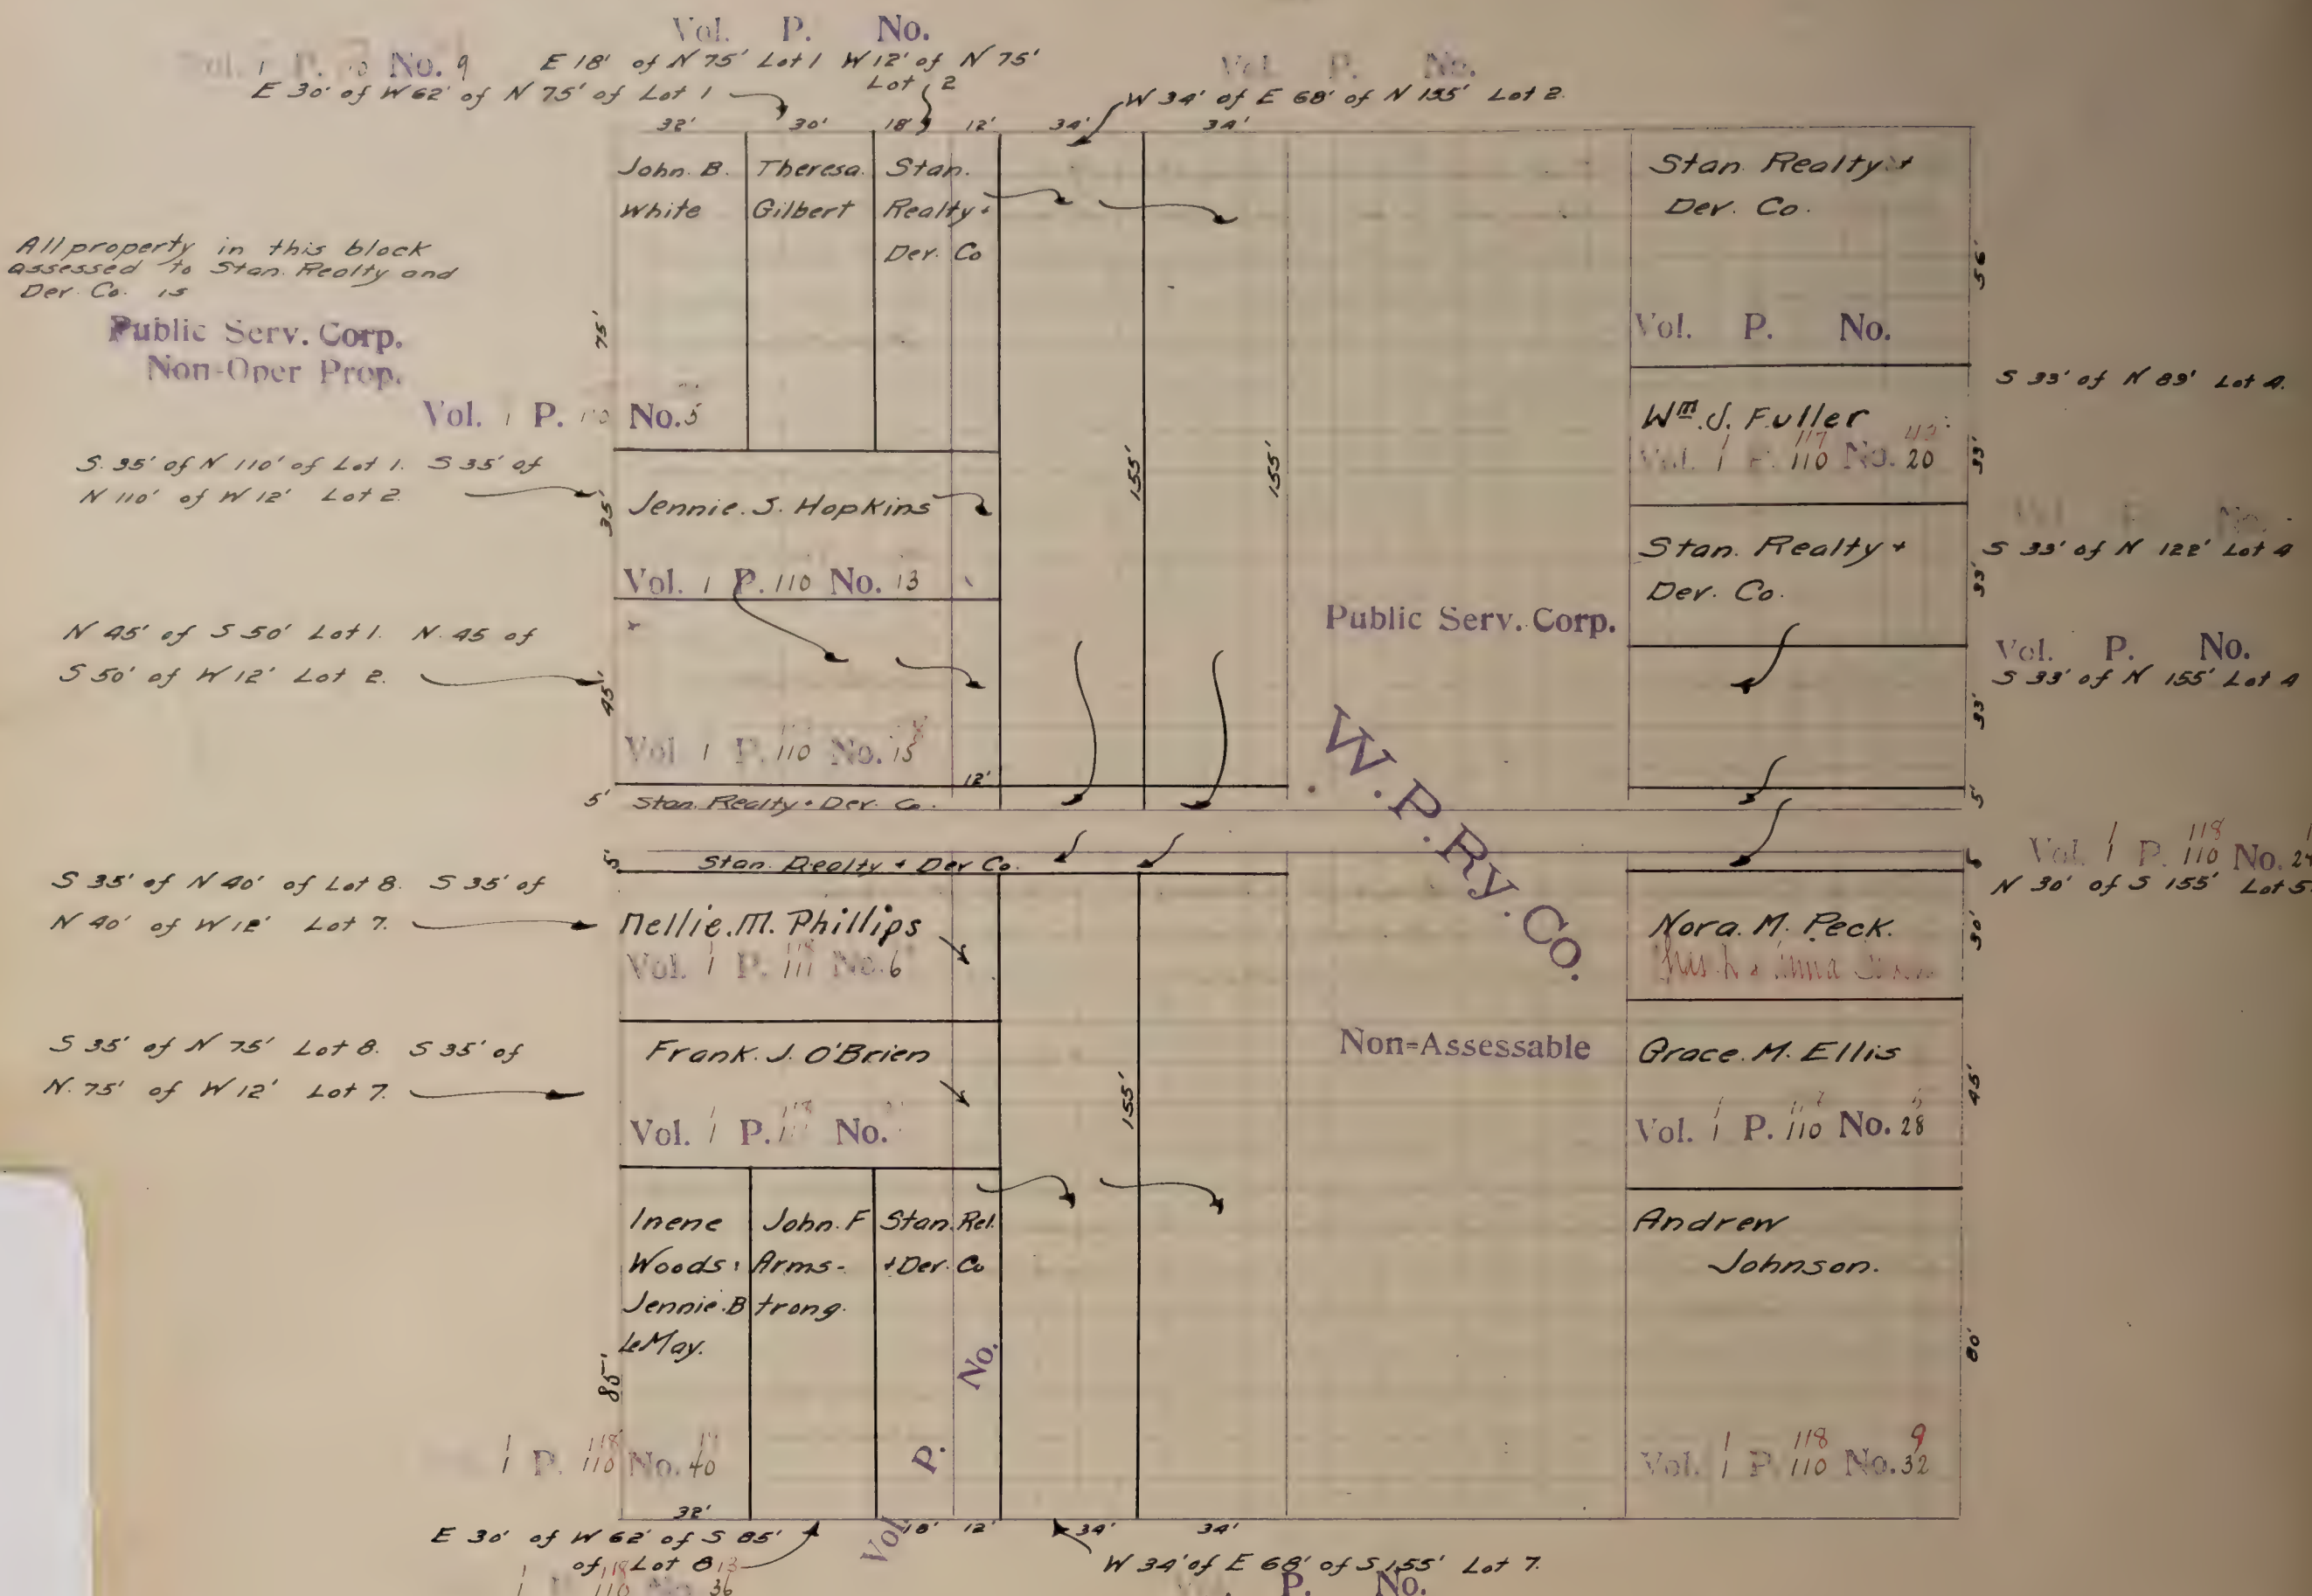 Vol. P. No.
No. 9
E 18' of N 75' Lot 1 W 12' of N 75'
Lot 2
Vol. P. No.
E 30' of W 62' of N 75' of Lot 1
W 34' of E 68' of N 155' Lot 2.
32' 30' 18' 12' 34' 34'
John. B. White
Theresa. Gilbert
Stan. Realty + Der. Co
Stan. Realty +
Der. Co.
56'
Vol. P. No.
All property in this block
assessed to Stan. Realty and
Der. Co. is
Public Serv. Corp.
Non-Oper Prop.
75'
Vol. 1 P. No. 5
S 33' of N 89' Lot 4.
Wm. J. Fuller
Vol. 1 P. 110 No. 20
33'
155' 155'
S. 35' of N 110' of Lot 1. S 35' of
N 110' of W 12' Lot 2.
35'
Jennie. S. Hopkins
Vol. 1 P. 110 No. 13
Stan. Realty +
Der. Co.
33'
S 33' of N 122' Lot 4
Public Serv. Corp.
N 45' of S 50' Lot 1. N. 45 of
S 50' of W 12' Lot 2.
45'
Vol 1 P. 110 No. 15
12'
Vol. P. No.
S 33' of N 155' Lot 4
33'
5' Stan. Realty + Der. Co.
5'
W. P. Ry. CO.
5' Stan Realty + Der Co.
5'
Vol. 1 P. 118
110 No.
N 30' of S 155' Lot 5.
S 35' of N 40' of Lot 8. S 35' of
N 40' of W 12' Lot 7.
Nellie. M. Phillips
Vol. 1 P. 111 No. 6
Nora. M. Peck.
30'
S 35' of N 75' Lot 8. S 35' of
N. 75' of W 12' Lot 7.
Frank. J. O'Brien
Vol. 1 P. No.
155'
Non-Assessable
Grace. M. Ellis
Vol. 1 P. 110 No. 28
45'
Inene
Woods
Jennie. B
LeMay.
John. F
Arms-
trong.
Stan. Rel.
+ Der. Co
Vol. P. No.
Andrew
Johnson.
80'
85'
1 P. 118
110 No. 40
118 9
Vol. 1 P 110 No. 32
32' 18' 12' 34' 34'
E 30' of W 62' of S 85'
of Lot 8
110 No 36
W 34' of E 68' of S 155' Lot 7.
P. No.